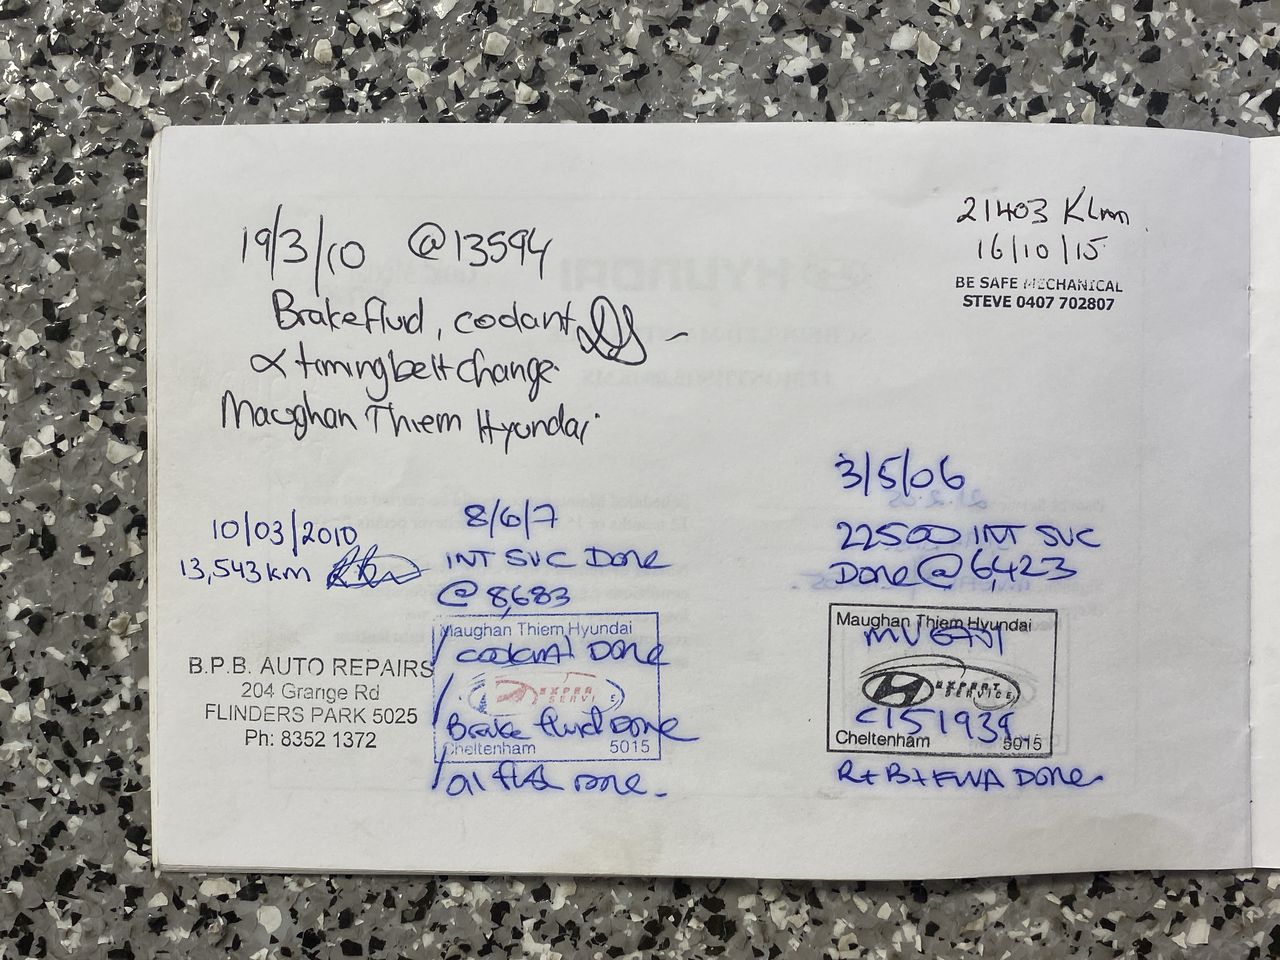 19/3/10 @13594
Brake fluid, coolant
& timing belt change
Maughan Thiem Hyundai
21403 Klm
16/10/15
BE SAFE MECHANICAL
STEVE 0407 702807
10/03/2010
13,543km
B.P.B. AUTO REPAIRS
204 Grange Rd
FLINDERS PARK 5025
Ph: 8352 1372
8/6/7
INT SVC DONE
@ 8,683
Maughan Thiem Hyundai
coolant DONE
EXPERT
SERVICE
Brake fluid DONE
Cheltenham 5015
Oil flush DONE.
3/5/06
22500 INT SVC
DONE @ 6,423
Maughan Thiem Hyundai
EXPERT
SERVICE
C151939
Cheltenham 5015
R+B+FWA DONE